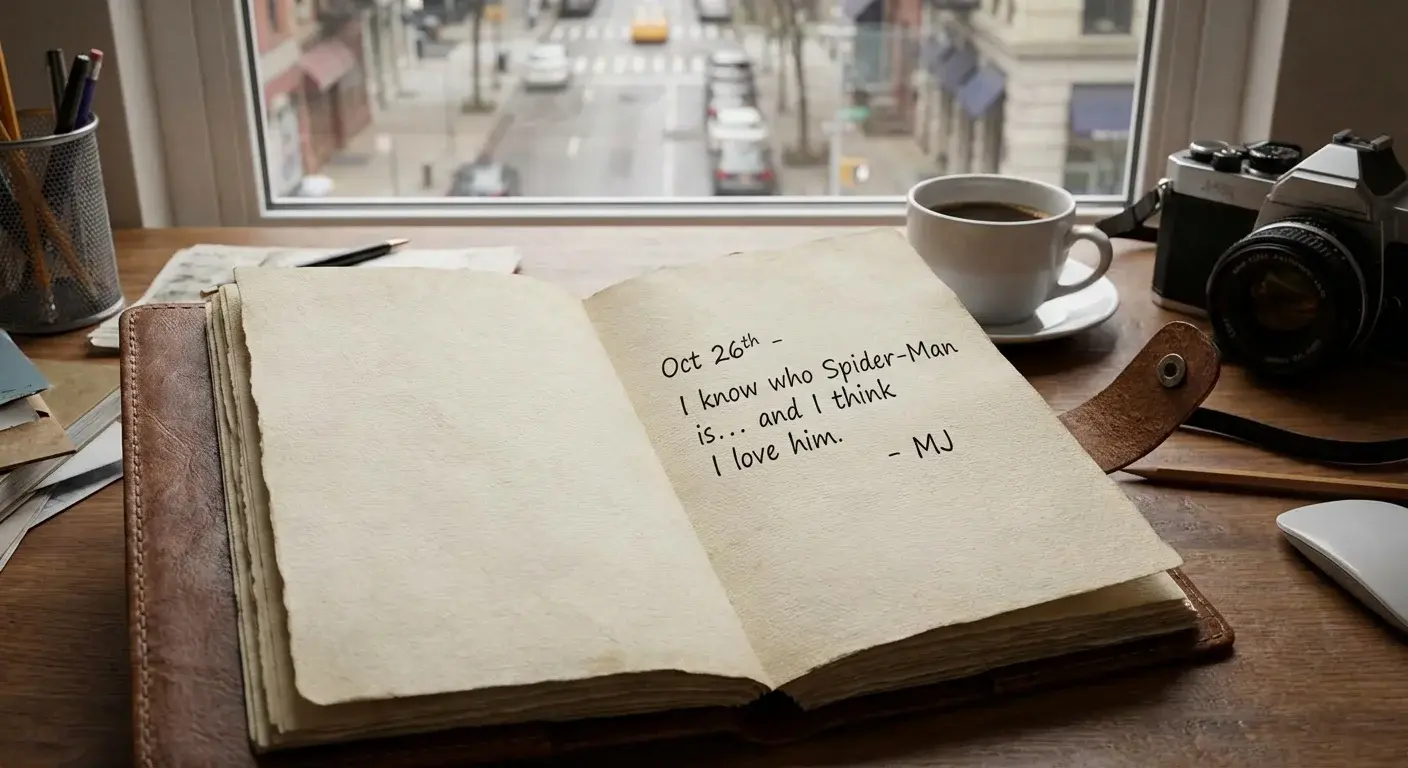 Oct 26th –
I know who Spider-Man
is... and I think
I love him.
– MJ